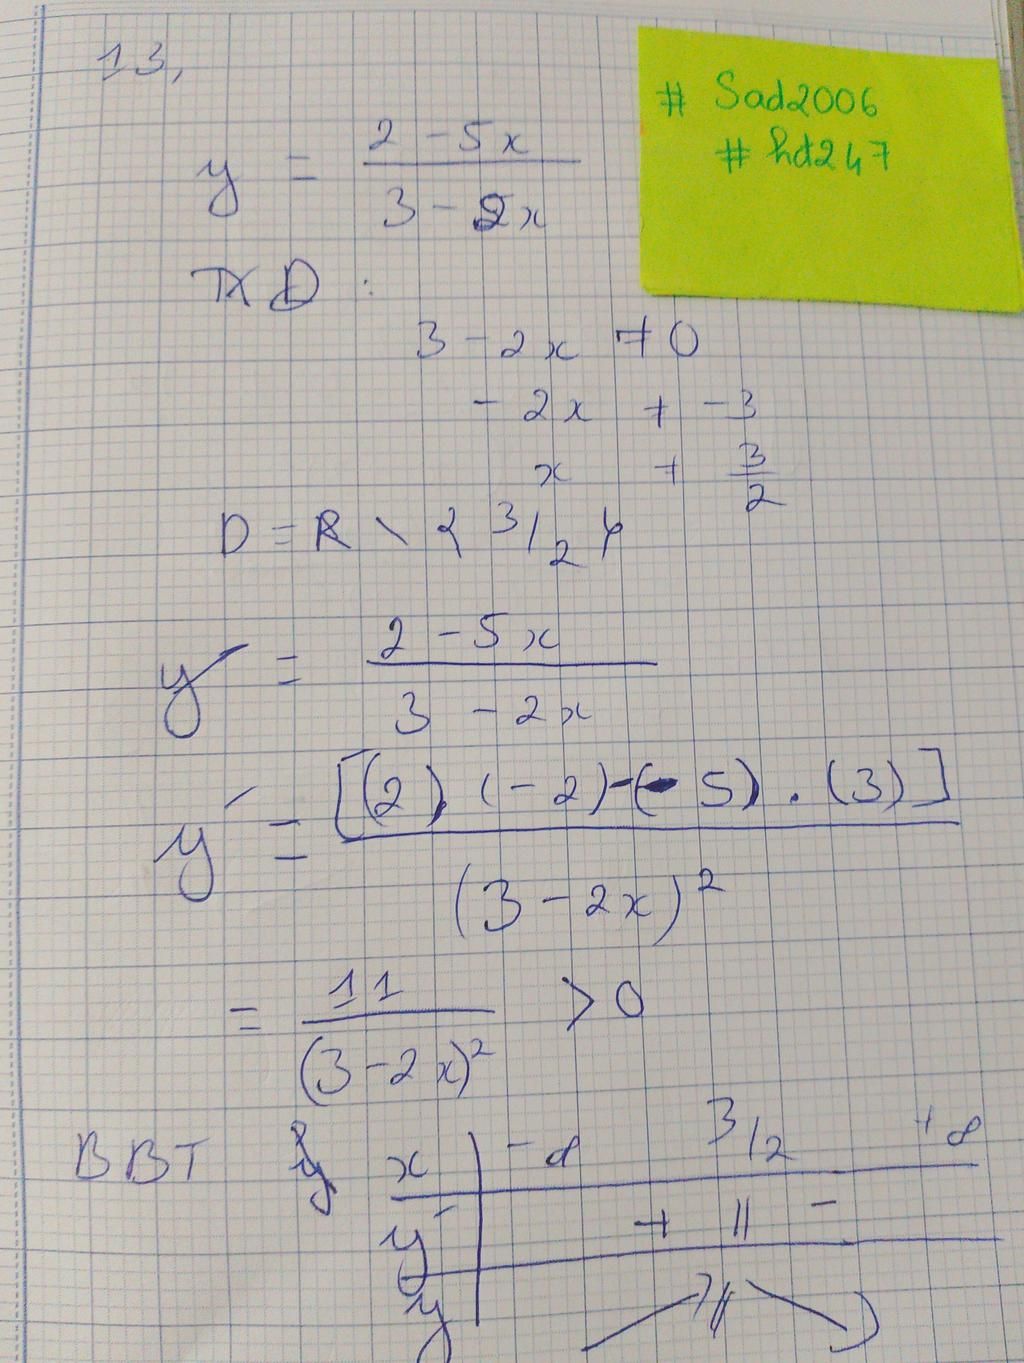 13,
# Sad2006
# hd247
y = \frac{2 - 5x}{3 - 2x}
TXD :
3 - 2x ≠ 0
- 2x ≠ -3
x ≠ \frac{3}{2}
D = R \ { 3/2 }
y' = \frac{2 - 5x}{3 - 2x}
y' = \frac{[(2).(-2)-(-5).(3)]}{(3 - 2x)^2}
= \frac{11}{(3-2x)^2} > 0
BBT x | -∞ 3/2 +∞
y' | + || -
y | ↗ || ↘